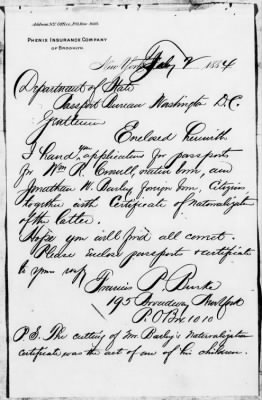 Address N.Y. Office, P.O. Box 1010.
PHENIX INSURANCE COMPANY
OF BROOKLYN
New York July 2 1884
Department of State
Passport Bureau Washington D.C.
Gentlemen
Enclosed herewith
I hand you application for passports
for Wm R. native born, and
Jonathan W. Barley foreign born, Citizens
together with Certificate of Naturalization
of the latter.
Hope you will find all correct.
Please enclose passport & certificate
to yours resp
Francis P. Burke
195 Broadway New York
P.O Box 1010
P.S. The cutting of Mr. Barley's Naturalization
certificate was the act of one of his children.